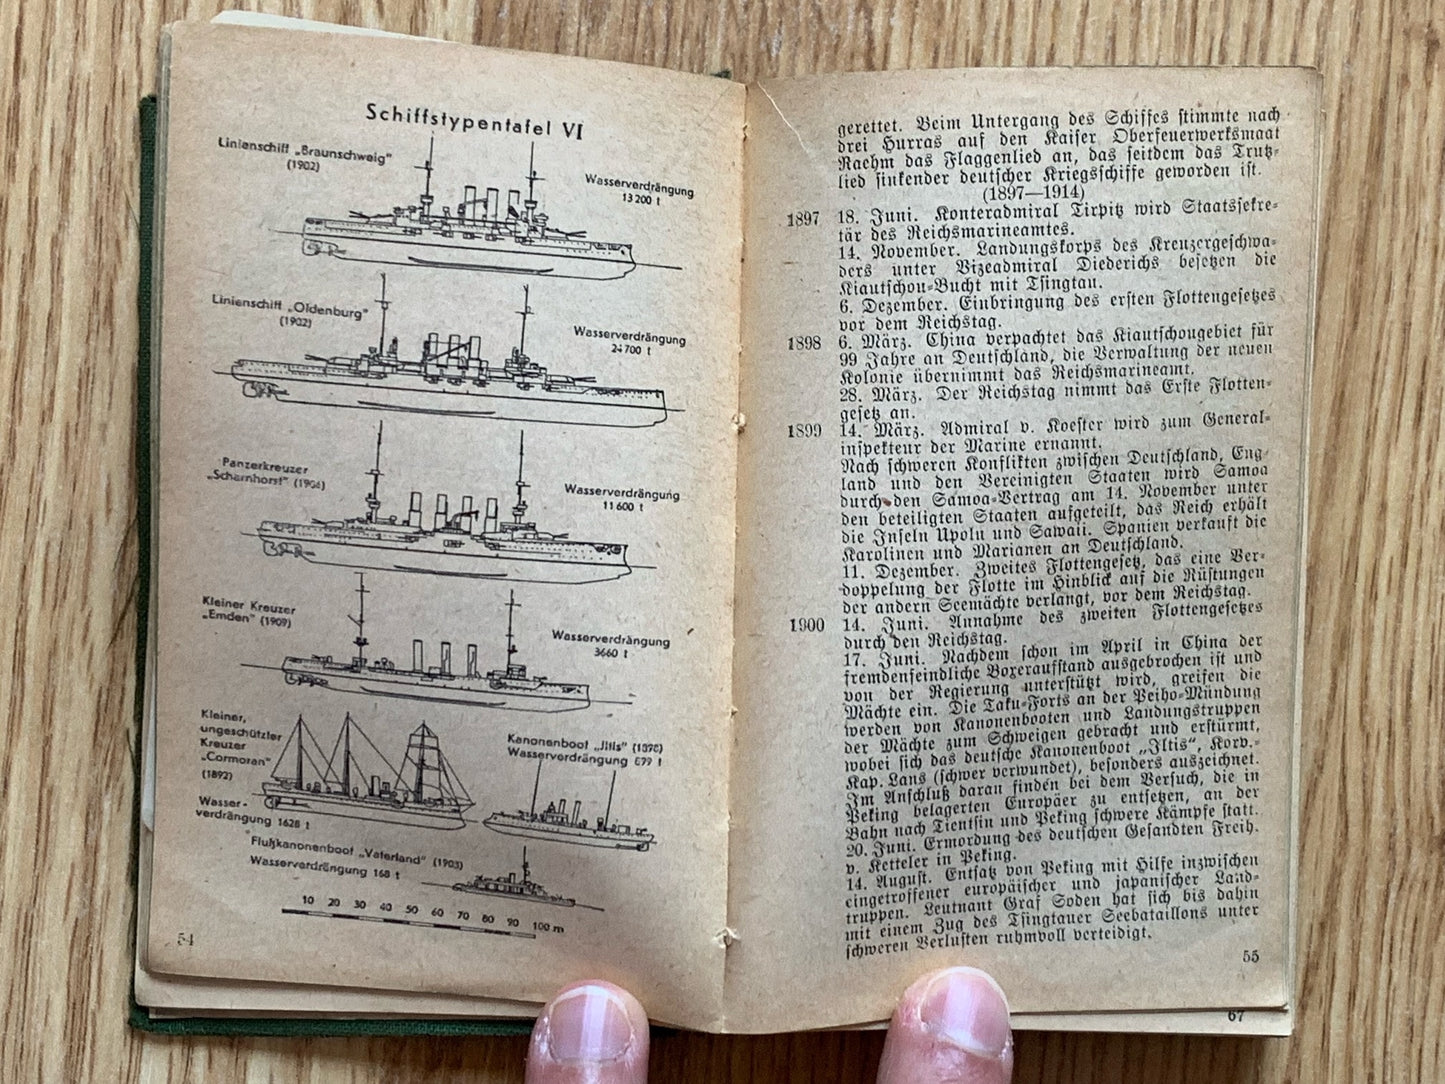 Schiffstypentafel VI
Linienschiff „Braunschweig“
(1902)
Wasserverdrängung
13 200 t
Linienschiff „Oldenburg“
(1902)
Wasserverdrängung
24 700 t
Panzerkreuzer
„Scharnhorst“ (1904)
Wasserverdrängung
11 600 t
Kleiner Kreuzer
„Emden“ (1909)
Wasserverdrängung
3660 t
Kleiner,
ungeschützter
Kreuzer
„Cormoran“
(1892)
Wasser-
verdrängung 1628 t
Kanonenboot „Iltis“ (1898)
Wasserverdrängung 899 t
Flußkanonenboot „Vaterland“ (1903)
Wasserverdrängung 168 t
10 20 30 40 50 60 70 80 90 100 m
54
gerettet. Beim Untergang des Schiffes stimmte nach
drei Hurras auf den Kaiser Oberfeuerwerksmaat
Raehm das Flaggenlied an, das seitdem das Trutz-
lied sinkender deutscher Kriegsschiffe geworden ist.
(1897—1914)
1897 18. Juni. Konteradmiral Tirpitz wird Staatssekre-
tär des Reichsmarineamtes.
14. November. Landungskorps des Kreuzergeschwa-
ders unter Vizeadmiral Diederichs besetzen die
Kiautschou-Bucht mit Tsingtau.
6. Dezember. Einbringung des ersten Flottengesetzes
vor dem Reichstag.
1898 6. März. China verpachtet das Kiautschougebiet für
99 Jahre an Deutschland, die Verwaltung der neuen
Kolonie übernimmt das Reichsmarineamt.
28. März. Der Reichstag nimmt das Erste Flotten-
gesetz an.
1899 14. März. Admiral v. Koester wird zum General-
inspekteur der Marine ernannt.
Nach schweren Konflikten zwischen Deutschland, Eng-
land und den Vereinigten Staaten wird Samoa
durch den Samoa-Vertrag am 14. November unter
den beteiligten Staaten aufgeteilt, das Reich erhält
die Inseln Upolu und Sawaii. Spanien verkauft die
Karolinen und Marianen an Deutschland.
11. Dezember. Zweites Flottengesetz, das eine Ver-
doppelung der Flotte im Hinblick auf die Rüstungen
der andern Seemächte verlangt, vor dem Reichstag.
1900 14. Juni. Annahme des zweiten Flottengesetzes
durch den Reichstag.
17. Juni. Nachdem schon im April in China der
fremdenfeindliche Boxeraufstand ausgebrochen ist und
von der Regierung unterstützt wird, greifen die
Mächte ein. Die Taku-Forts an der Peiho-Mündung
werden von Kanonenbooten und Landungstruppen
der Mächte zum Schweigen gebracht und erstürmt,
wobei sich das deutsche Kanonenboot „Iltis“, Korv.-
Kap. Lans (schwer verwundet), besonders auszeichnet.
Im Anschluß daran finden bei dem Versuch, die in
Peking belagerten Europäer zu entsetzen, an der
Bahn nach Tientsin und Peking schwere Kämpfe statt.
20. Juni. Ermordung des deutschen Gesandten Freih.
v. Ketteler in Peking.
14. August. Entsatz von Peking mit Hilfe inzwischen
eingetroffener europäischer und japanischer Land-
truppen. Leutnant Graf Soden hat sich bis dahin
mit einem Zug des Tsingtauer Seebataillons unter
schweren Verlusten ruhmvoll verteidigt.
55
67